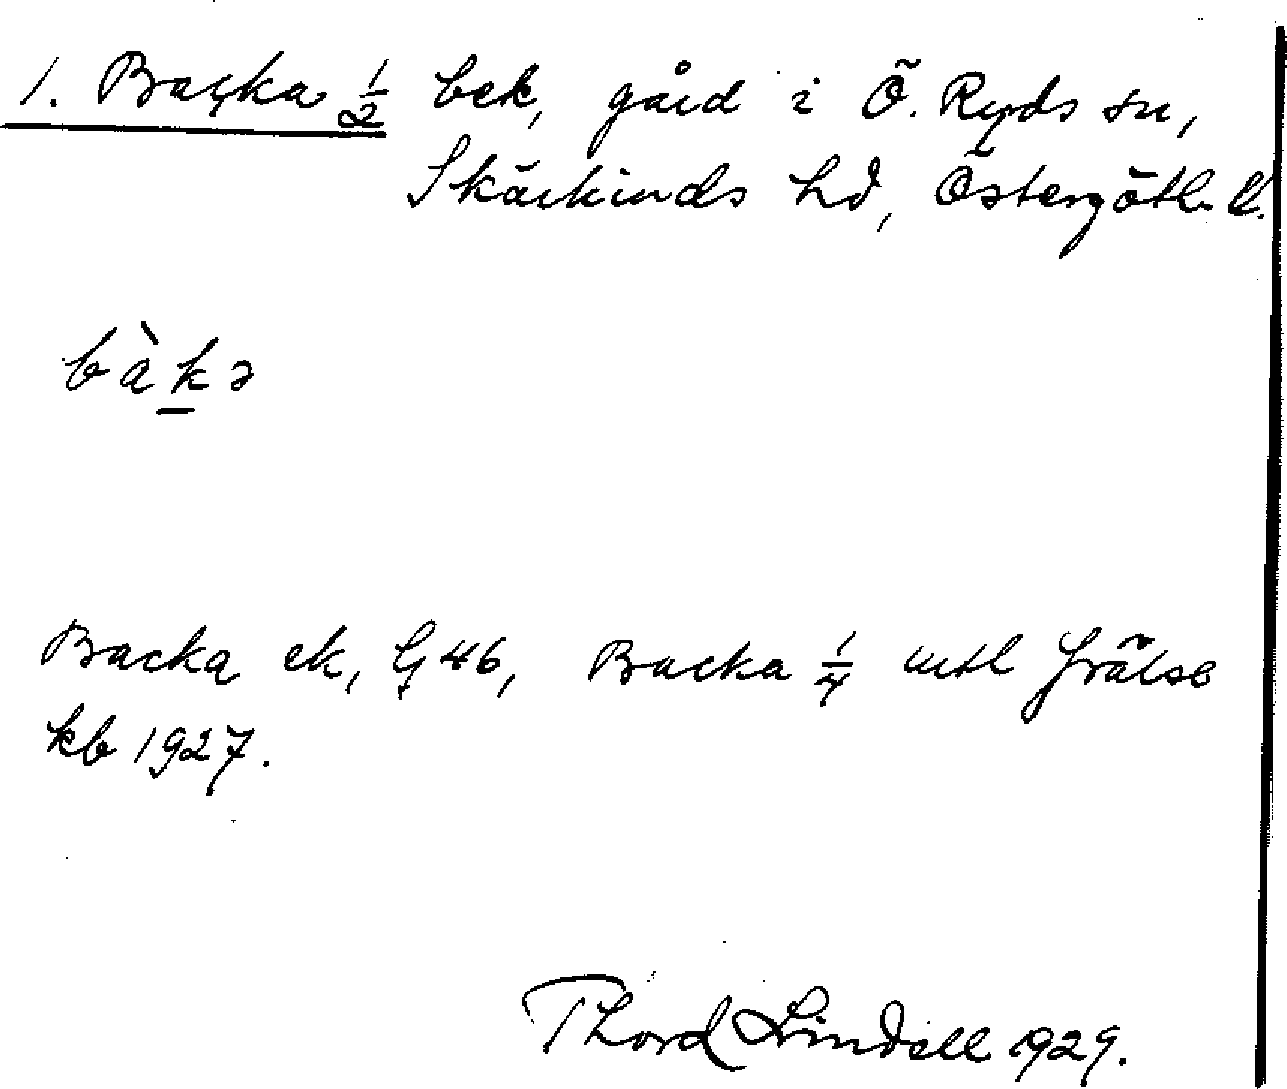 1. Backa ½ bek, gård i Ö. Ryds sn,
Skärkinds hd, Östergötl. l.
bàk̲ə
Backa ek, G 46, Backa ¼ mtl frälse
kb 1927.
Thord Lindell 1929.